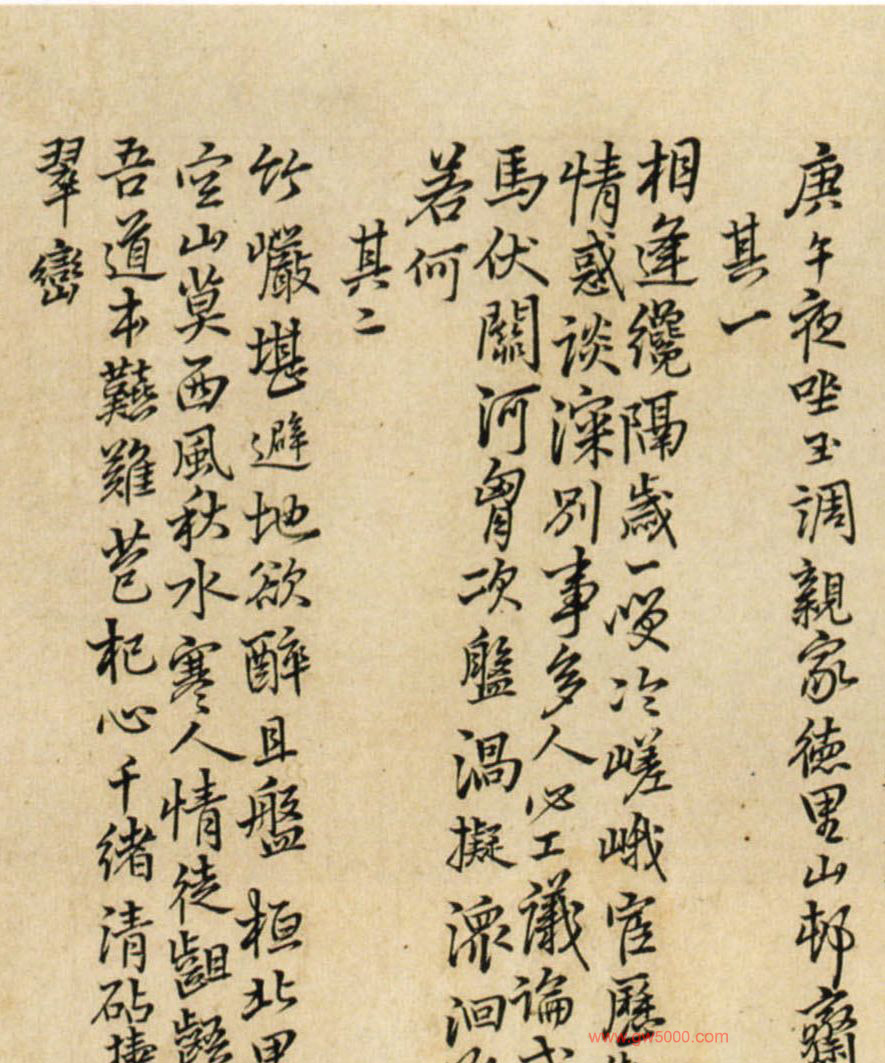 庚午夜坐玉調親家德里山邨齋
其一
相逢纔隔歲一嘆冷嵯峨宦歷
情惑談深別事多人必工議論
馬伏關河胷次盤渦擬瀠洄
若何
其二
竹巖堪避地欲醉且盤桓北
空山莫西風秋水寒人情徒齟齬
吾道本艱難芑杞心千緒清砧擣
翠巒
www.gw5000.com